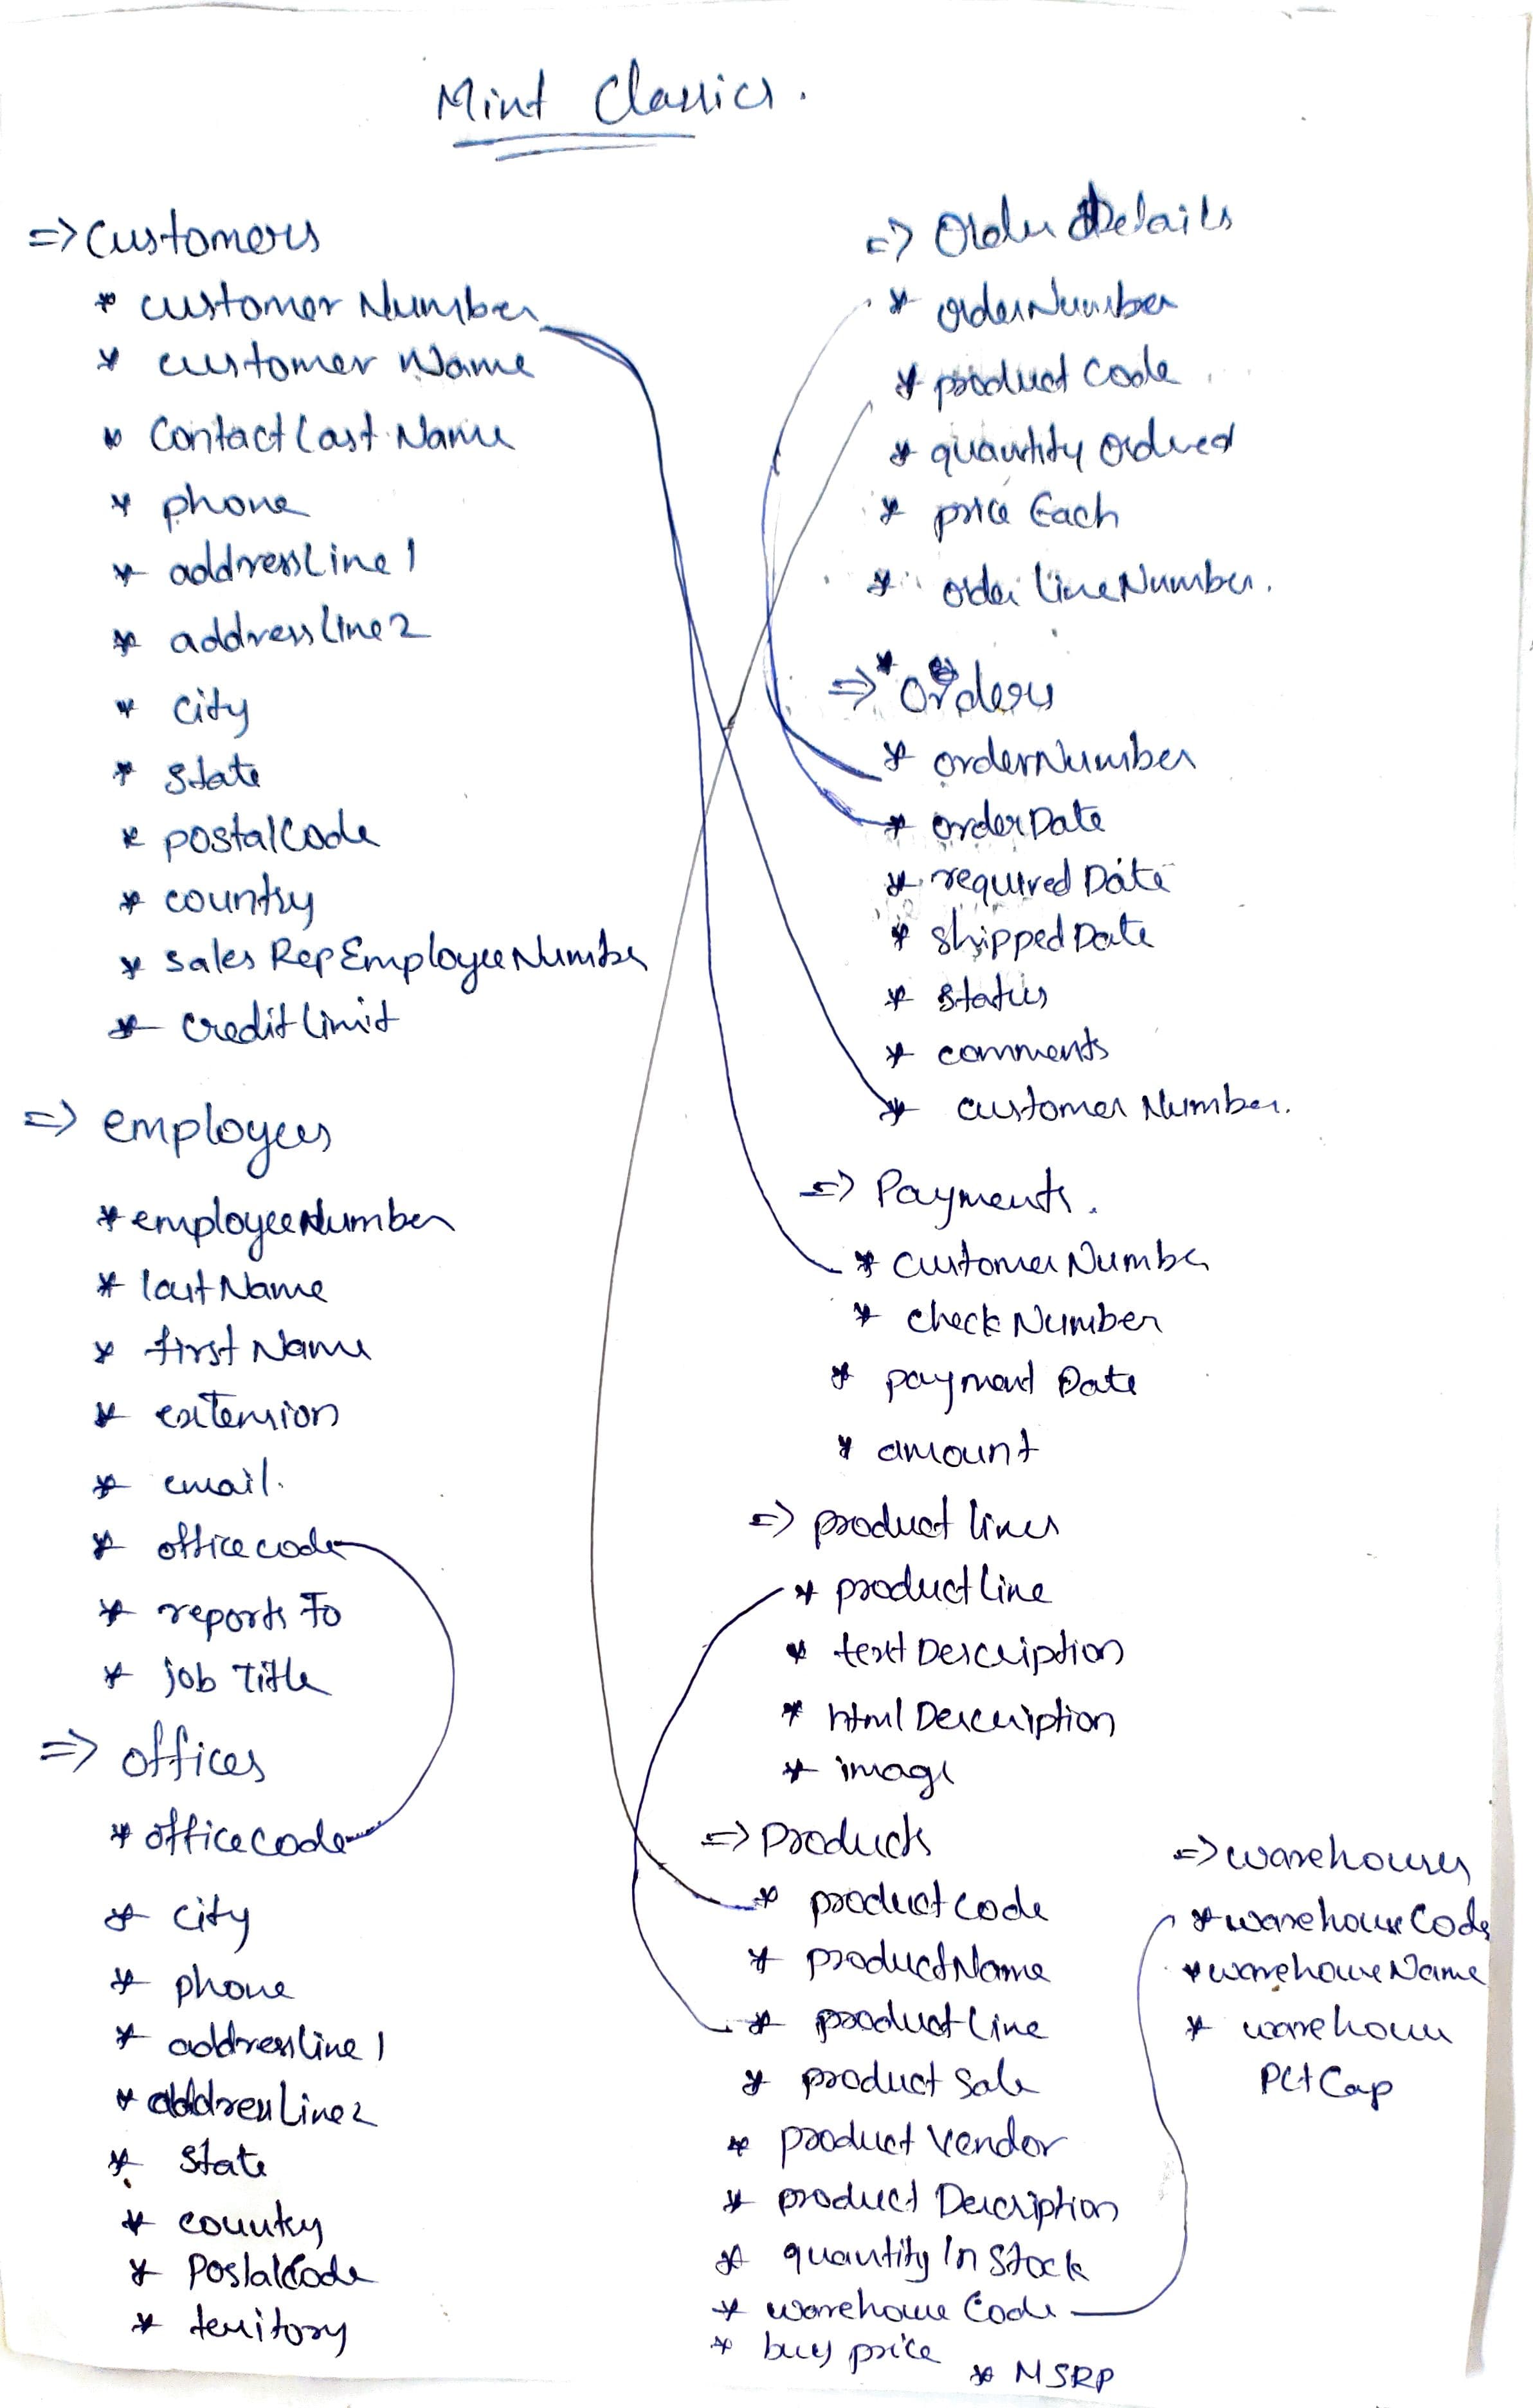 Mint Classics.
=> Customers
* customerNumber
* customerName
* ContactLastName
* phone
* addressLine1
* addressLine2
* city
* state
* postalCode
* country
* sales RepEmployeeNumber
* creditLimit
=> employees
* employeeNumber
* lastName
* firstName
* extension
* email.
* officecode
* reportsTo
* job Title
=> offices
* officecode
* city
* phone
* addressline1
* addressLine2
* state
* country
* PostalCode
* territory
=> OrderDetails
* orderNumber
* product Code
* quantity Ordered
* price Each
* order lineNumber.
=> Orders
* orderNumber
* orderDate
* requiredDate
* shippedDate
* status
* comments
* customerNumber.
=> Payments.
* CustomerNumber
* checkNumber
* payment Date
* amount
=> product lines
* productline
* textDescription
* htmlDescription
* image
=> Products
* productcode
* productName
* productLine
* product Sale
* product Vendor
* product Description
* quantity In Stock
* warehouse Code
* buy price
* MSRP
=> warehouses
* warehouseCode
* warehouseName
* warehouse
PctCap